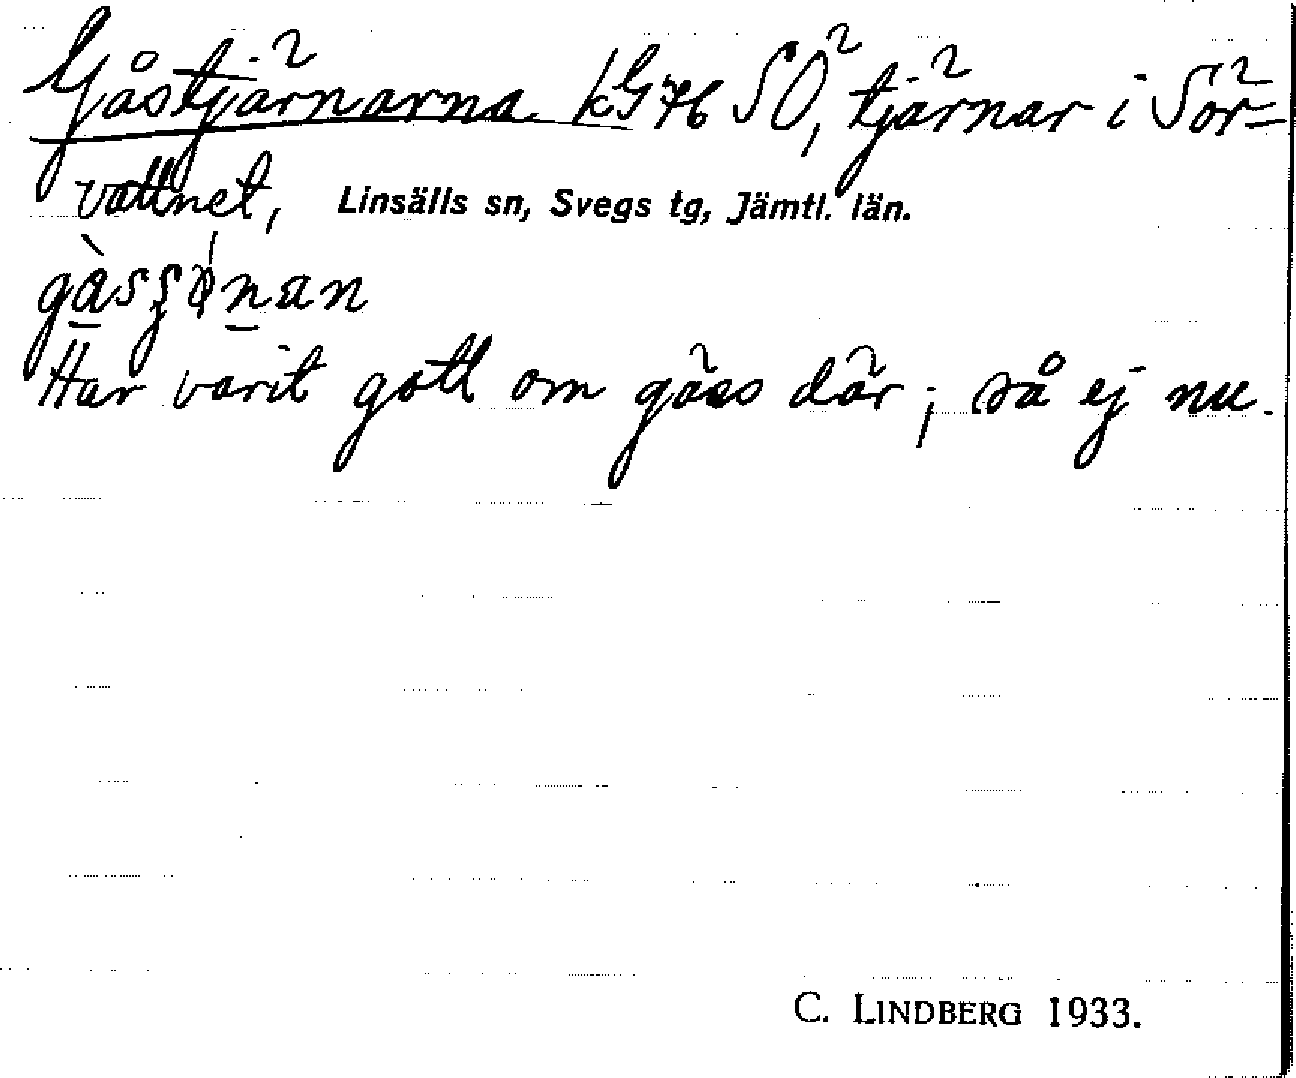 Gåstjärnarna kG76 SÖ, tjärnar i Sör=
vattnet, Linsälls sn, Svegs tg, Jämtl. län.
Har varit gott om gäss där; så ej nu.
C. LINDBERG 1933.